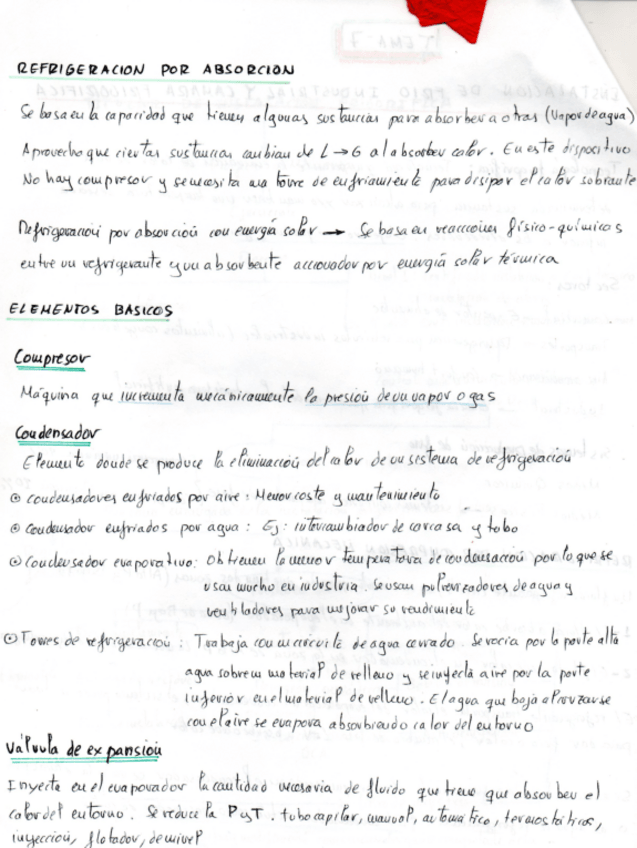 REFRIGERACION POR ABSORCION
Se basa en la capacidad que tienen algunas sustancias para absorber a otras (Vapor de agua)
Aprovecho que ciertas sustancias cambian de L → G al absorber calor. En este dispositivo
No hay compresor y se necesita una torre de enfriamiento para disipar el calor sobrante
Refrigeración por absorción con energía solar → Se basa en reacciones físico-químicas
entre un refrigerante y un absorbente accionador por energía solar térmica
ELEMENTOS BASICOS
Compresor
Máquina que incrementa mecánicamente la presión de un vapor o gas
Condensador
Elemento donde se produce la eliminación del calor de un sistema de refrigeración
⊙ condensadores enfriados por aire : Menor coste y mantenimiento
⊙ Condensador enfriados por agua : Ej : intercambiador de carcasa y tubo
⊙ Condensador evaporativo : Obtienen la menor temperatura de condensación por lo que se
usan mucho en industria. Se usan pulverizadores de agua y
ventiladores para mejorar su rendimiento
⊙ Torres de refrigeración : Trabaja con un circuito de agua cerrado. Se rocía por la parte alta
agua sobre un material de relleno y se inyecta aire por la parte
inferior en el material de relleno. El agua que baja al cruzarse
con el aire se evapora absorbiendo calor del entorno
Válvula de expansión
Inyecta en el evaporador la cantidad necesaria de fluido que tiene que absorber el
calor del entorno. Se reduce la P y T. tubo capilar, manual, automático, termostáticos,
inyeccion, flotador, de nivel